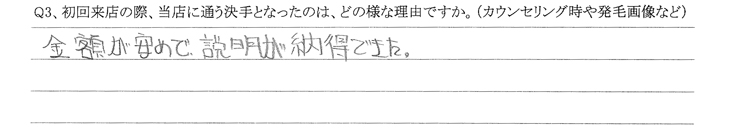 Q3、初回来店の際、当店に通う決手となったのは、どの様な理由ですか。(カウンセリング時や発毛画像など)
金額が安めで、説明が納得できた。